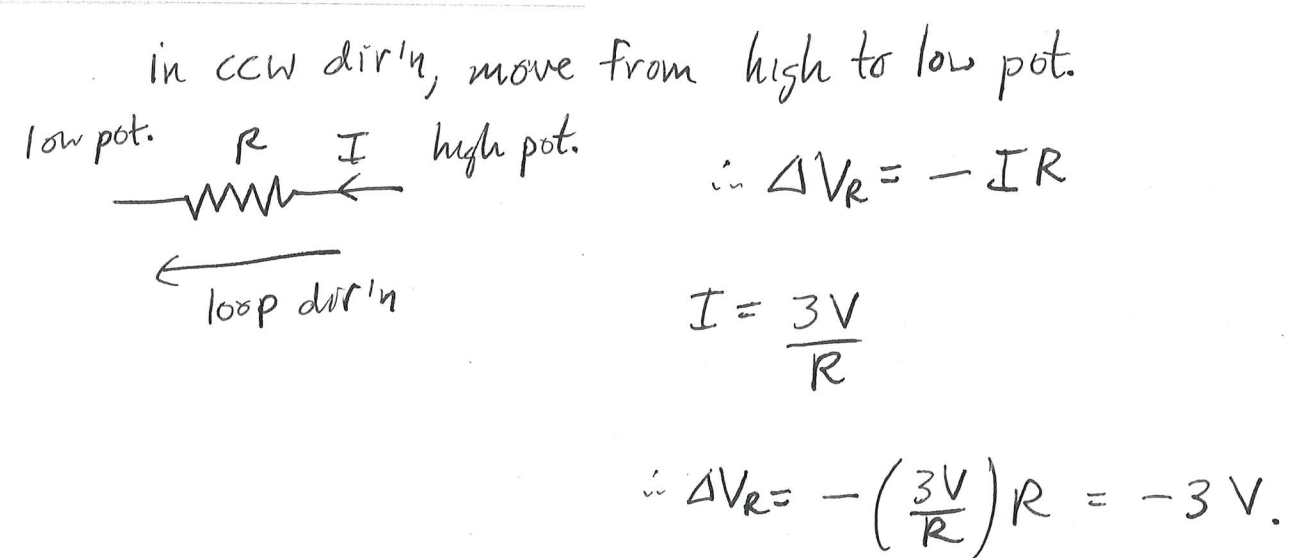 in ccw dir'n, move from high to low pot.
low pot. R I high pot.
∴ ΔVR = - IR
loop dir'n
I = 3V
R
∴ ΔVR = - (3V/R) R = -3 V.